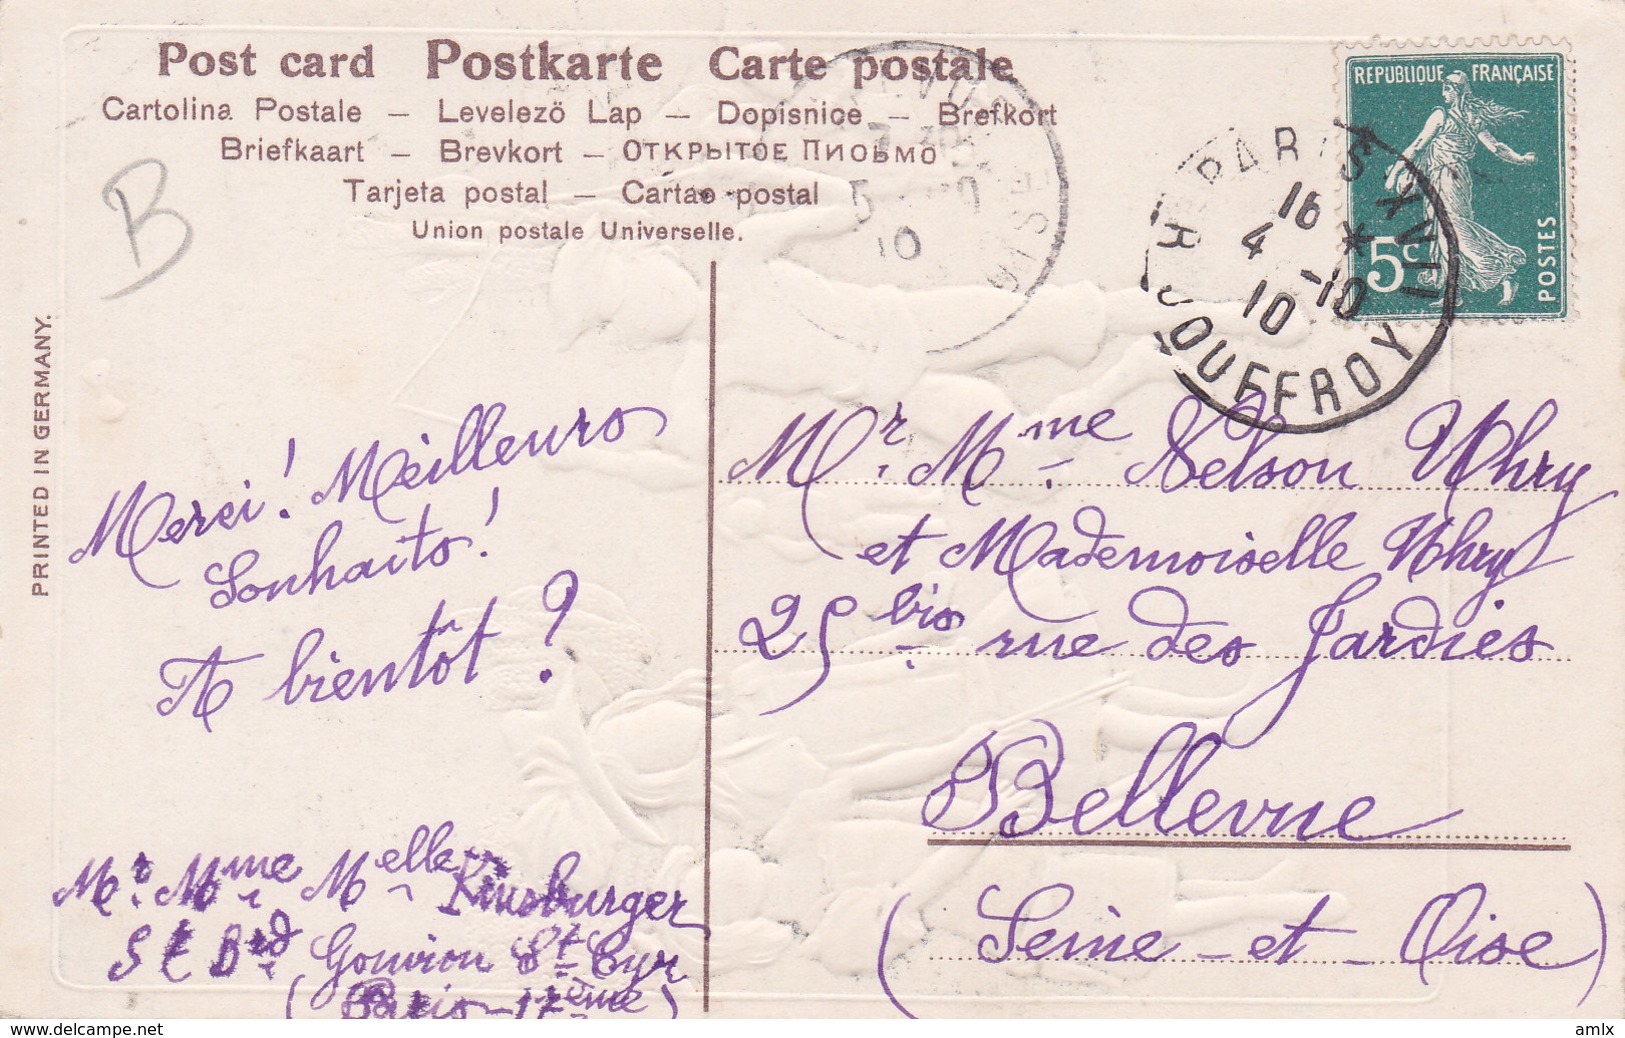 Post card Postkarte Carte postale
Cartolina Postale – Levelező Lap – Dopisnice – Brefkort
Briefkaart – Brevkort – Открытое Письмо
Tarjeta postal – Cartao postal
Union postale Universelle.
B
PRINTED IN GERMANY.
REPUBLIQUE FRANÇAISE
5c
POSTES
PARIS XVII
16 *
4 -10
10
R. JOUFFROY
10
Merci! Meilleurs
Souhaits!
A bientôt?
Mr. Mme Melle
Brd Gouvion St-Cyr
(Paris-17ème)
Mr. Mme Nelson Uhry
et Mademoiselle Uhry
25 bis rue des Jardies
Bellevue
(Seine-et-Oise)
www.delcampe.net
amlx